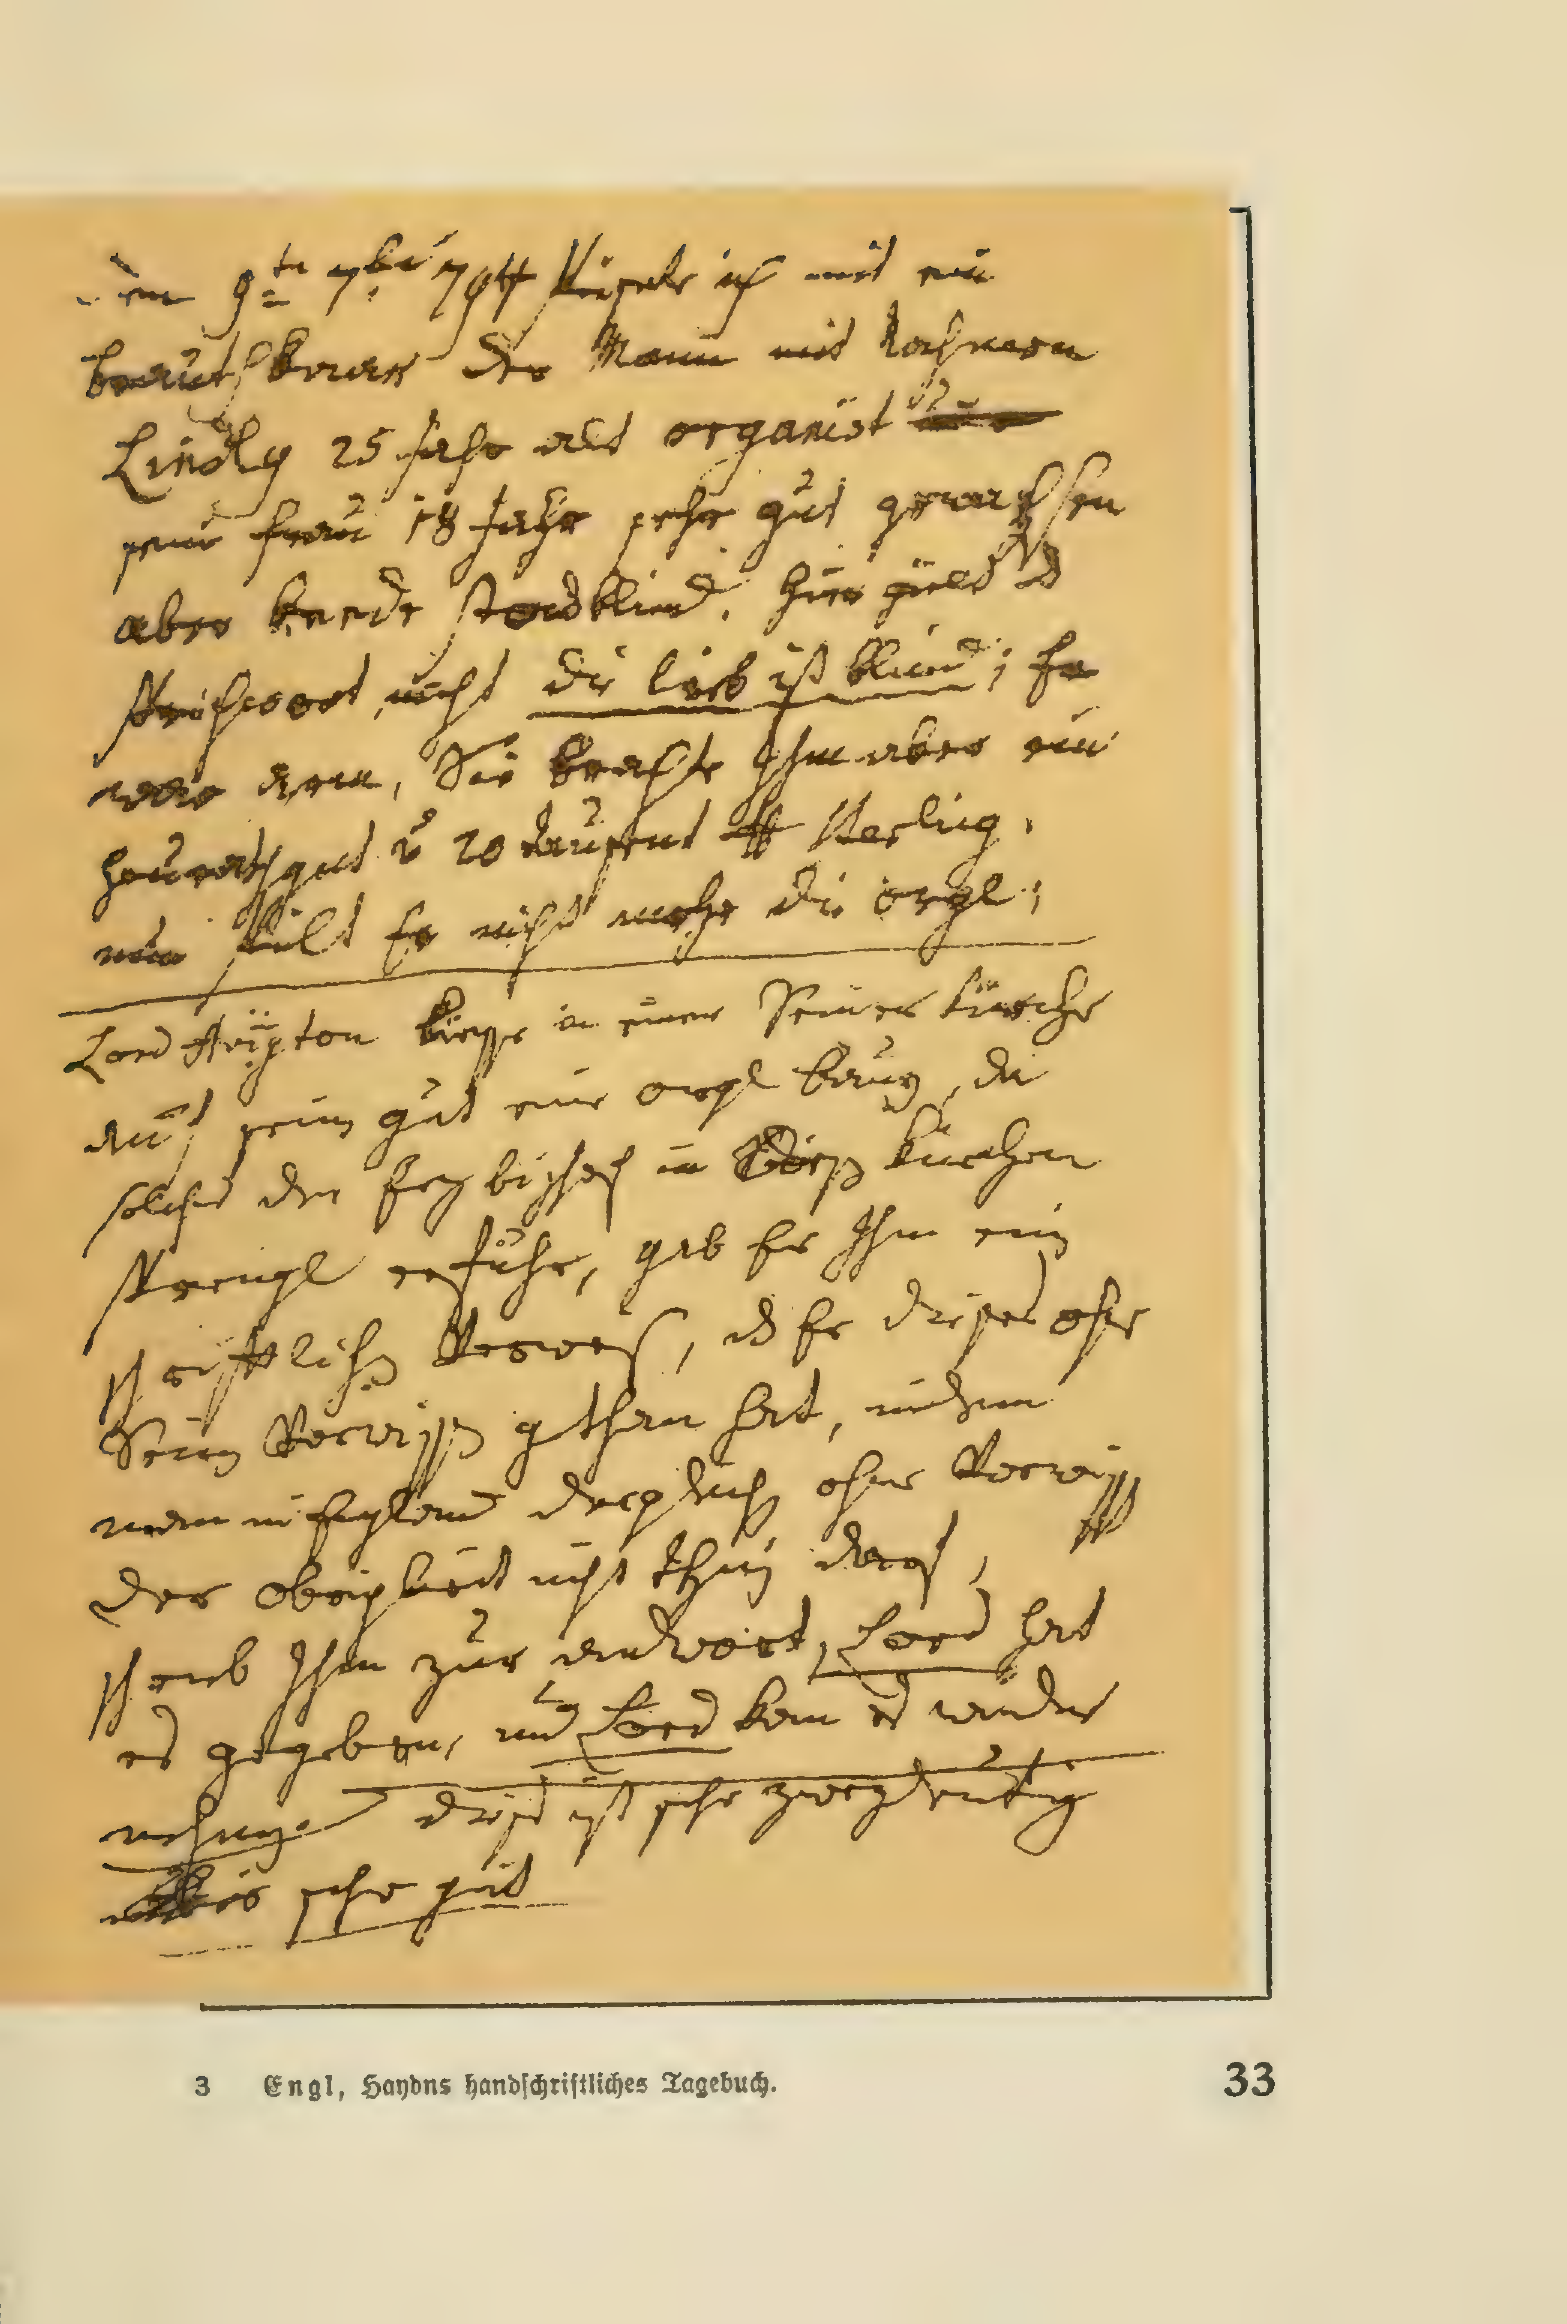 den 9ten 7br 794 speisete ich mit ein
Brauth baar der Mann mit Nahmen
Lindly 25 Jahr alt organist
seine Frau 18 Jahr sehr gut gewachsen
aber beede stockblind. hier gield das
Sprichwort nicht die lieb ist blind; Er
ware arm, Sie brachte Ihm aber ein
heurathsgut v 20 tausent ℔ Sterling.
nun spielt Er nicht mehr die orgl;
Lord liesse in einer Seiner kürche
auf sein gut eine orgl bauen, da
solches der Erzbischof in kirchen
Sprengl erfuhr, gab Er Ihm ein
schriftlichen Verweis, daß Er dieses ohne
Seinen Vorwissen gethan hat, indem
man in Engelland dergleichen ohne Vorwissen
der obrigkeit nicht thun darf,
schrieb Ihm zur andwort, Lord hat
es gegeben, und Lord kan es wieder
nehmen. dieses ist sehr zweydeutig
aber sehr gut
3 Engl, Haydns handschriftliches Tagebuch.
33